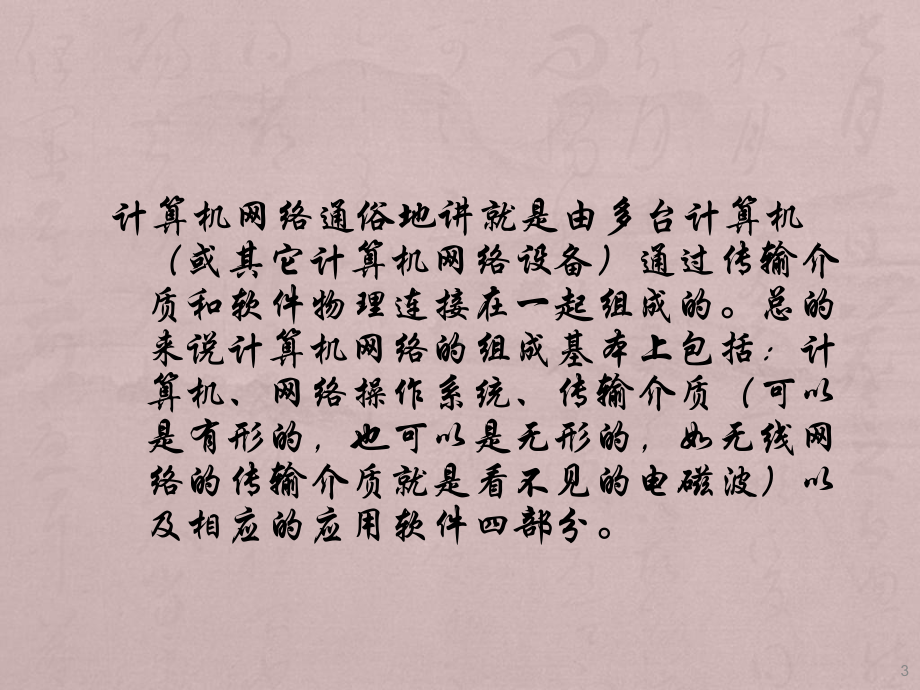 计算机网络通俗地讲就是由多台计算机
（或其它计算机网络设备）通过传输介
质和软件物理连接在一起组成的。总的
来说计算机网络的组成基本上包括：计
算机、网络操作系统、传输介质（可以
是有形的，也可以是无形的，如无线网
络的传输介质就是看不见的电磁波）以
及相应的应用软件四部分。
3